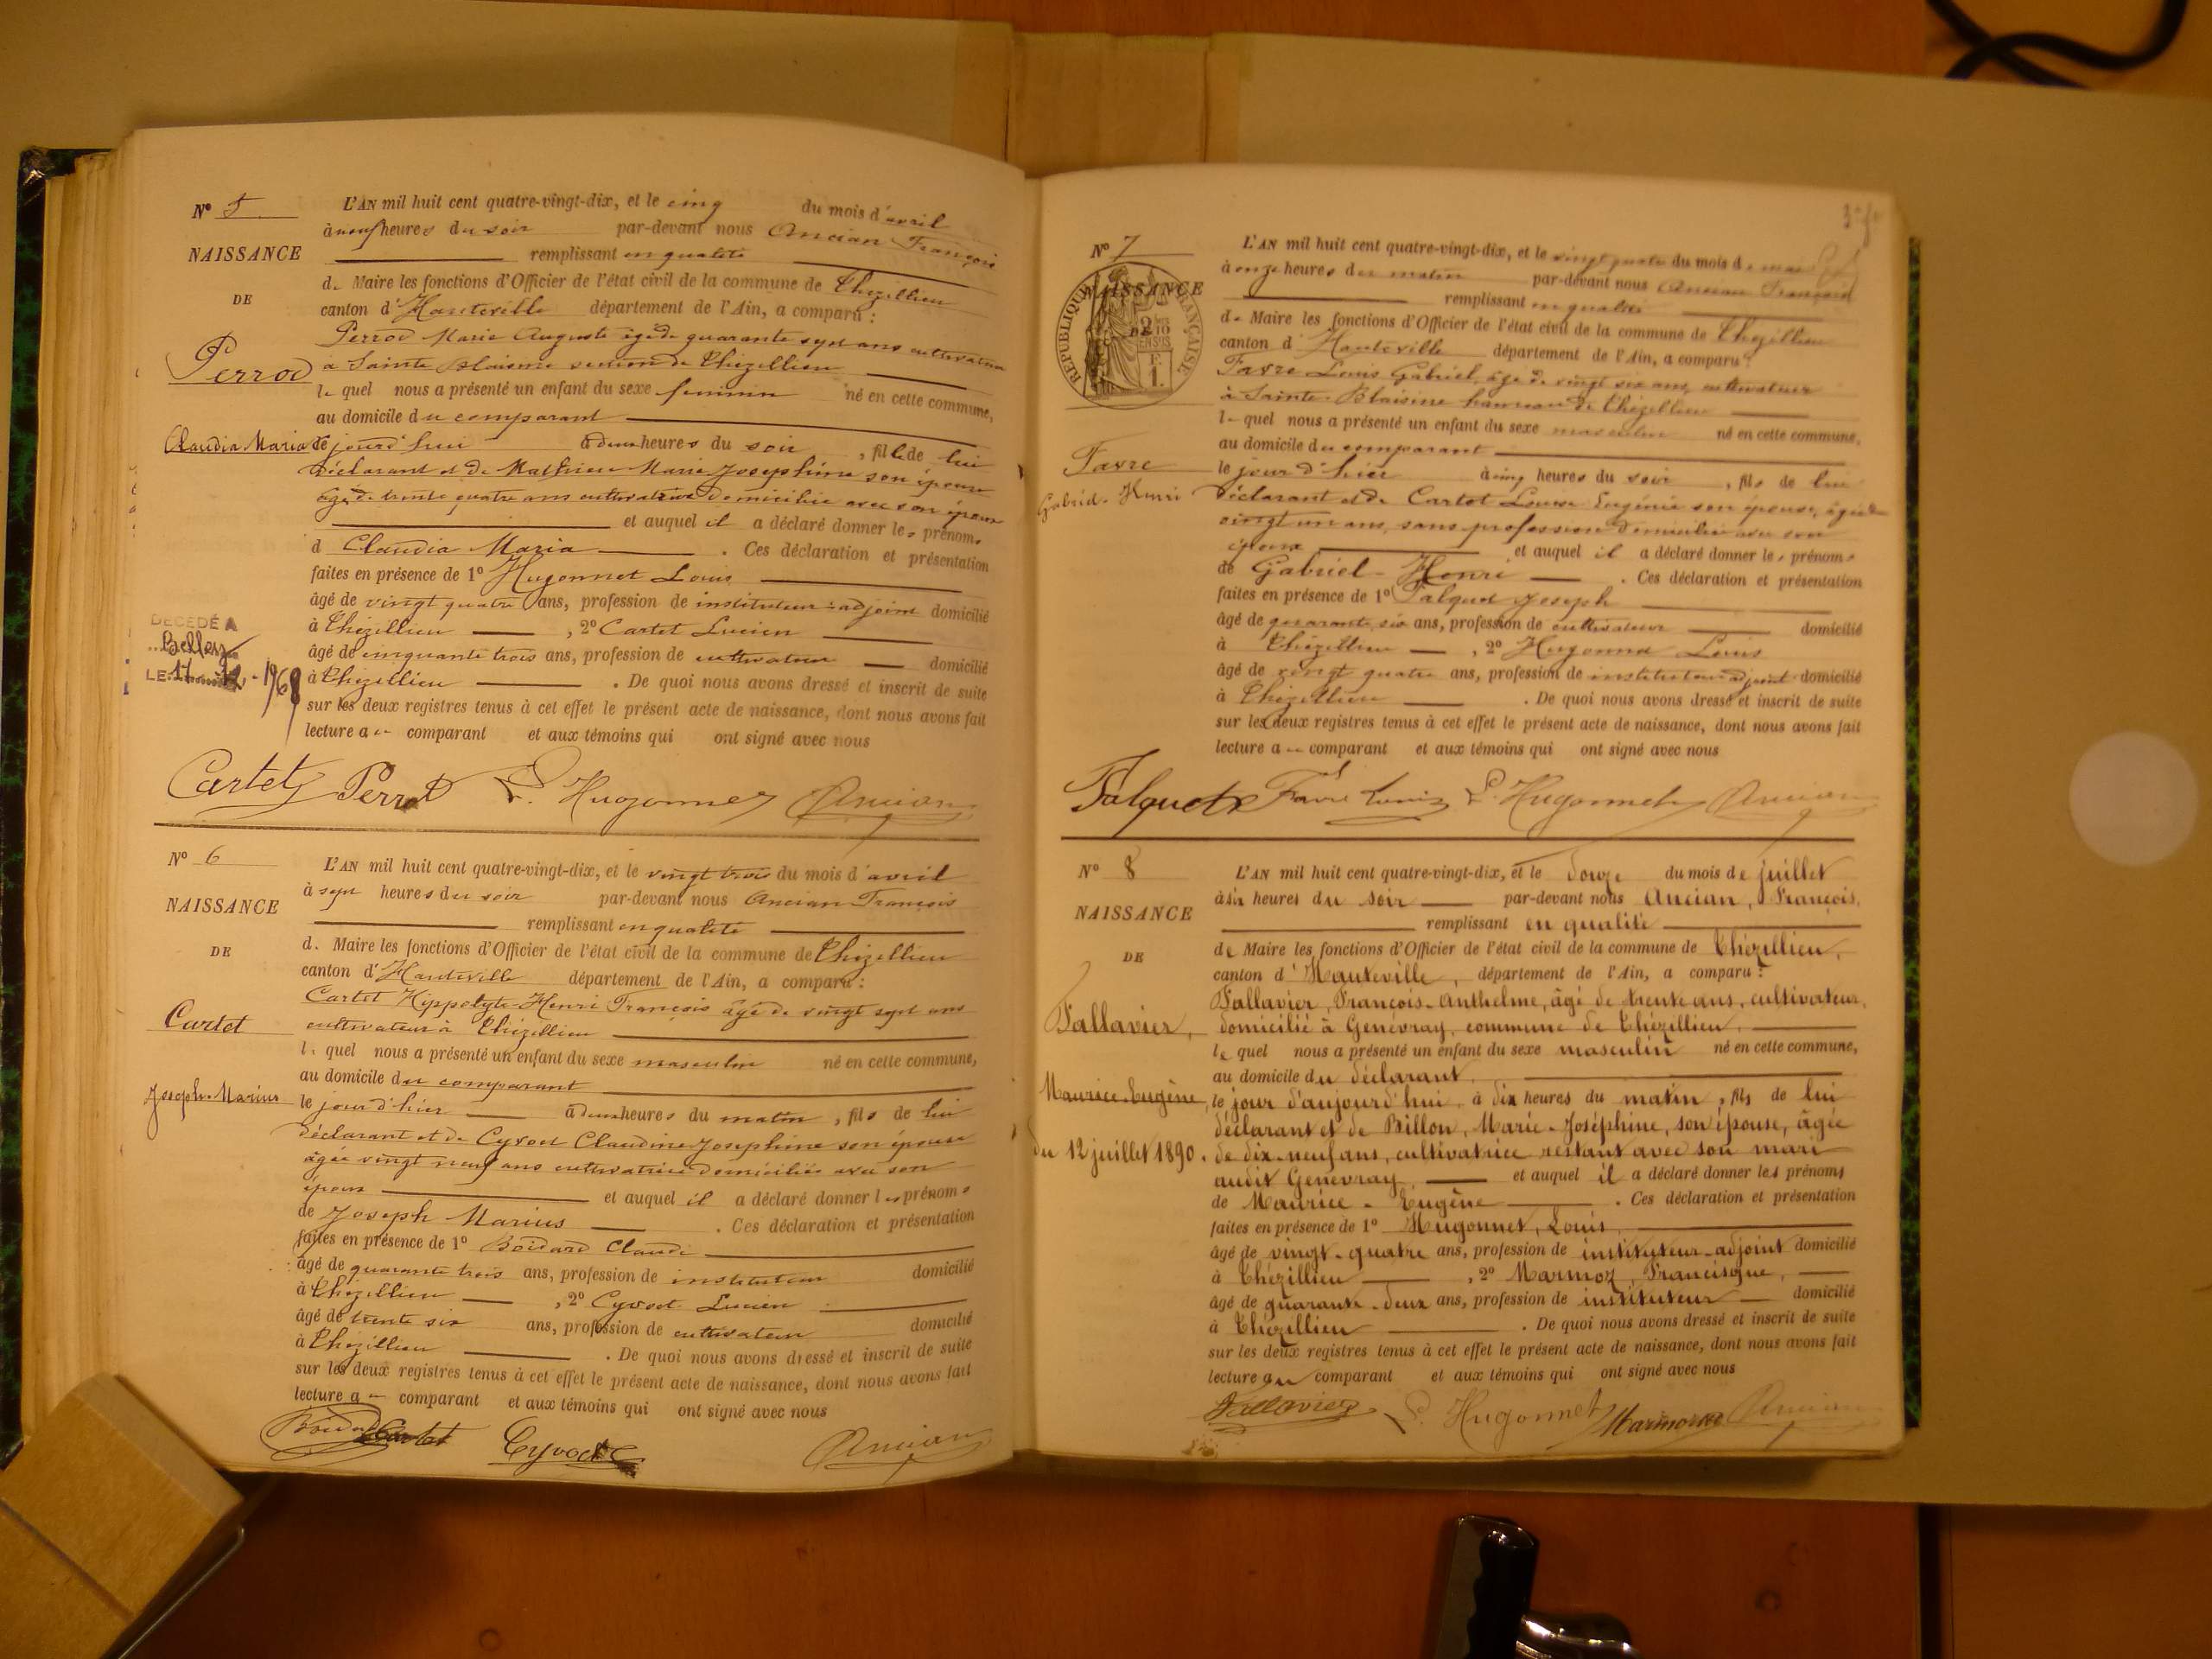 N° 5
NAISSANCE
DE
Perrod
Claudia Maria
DÉCÉDÉ A
Belley
LE 17-12-1968
L'AN mil huit cent quatre-vingt-dix, et le cinq du mois d'avril
à neuf heures du soir par-devant nous Ancian François
remplissant en qualité
de Maire les fonctions d'Officier de l'état civil de la commune de Thézillieu
canton d'Hauteville département de l'Ain, a comparu :
Perrod Marie Auguste âgé de quarante sept ans cultivateur
à Sainte Blaisine section de Thézillieu
le quel nous a présenté un enfant du sexe féminin né en cette commune,
au domicile du comparant
le jourd'hui à deux heures du soir, fille de lui
déclarant et de Mathieu Marie Josephine son épouse
âgée de trente quatre ans cultivatrice domiciliée avec son époux
et auquel il a déclaré donner les prénoms
d Claudia Maria . Ces déclaration et présentation
faites en présence de 1° Hugonnet Louis
âgé de vingt quatre ans, profession de instituteur-adjoint domicilié
à Thézillieu , 2° Cartet Lucien
âgé de cinquante trois ans, profession de cultivateur domicilié
à Thézillieu . De quoi nous avons dressé et inscrit de suite
sur les deux registres tenus à cet effet le présent acte de naissance, dont nous avons fait
lecture au comparant et aux témoins qui ont signé avec nous
Cartet Perrod L. Hugonnet Ancian
N° 6
NAISSANCE
DE
Cartet
Joseph-Marius
L'AN mil huit cent quatre-vingt-dix, et le vingt trois du mois d'avril
à sept heures du soir par-devant nous Ancian François
remplissant en qualité
de Maire les fonctions d'Officier de l'état civil de la commune de Thézillieu
canton d'Hauteville département de l'Ain, a comparu :
Cartet Hippolyte-Henri François âgé de vingt sept ans
cultivateur à Thézillieu
le quel nous a présenté un enfant du sexe masculin né en cette commune,
au domicile du comparant
le jour d'hier à deux heures du matin, fils de lui
déclarant et de Cyvoct Claudine Josephine son épouse
âgée vingt neuf ans cultivatrice domiciliée avec son
époux et auquel il a déclaré donner les prénoms
de Joseph Marius . Ces déclaration et présentation
faites en présence de 1° Boidard Claude
âgé de quarante trois ans, profession de instituteur domicilié
à Thézillieu , 2° Cyvoct Lucien
âgé de trente six ans, profession de cultivateur domicilié
à Thézillieu . De quoi nous avons dressé et inscrit de suite
sur les deux registres tenus à cet effet le présent acte de naissance, dont nous avons fait
lecture au comparant et aux témoins qui ont signé avec nous
Boidard Cartet Cyvoct Ancian
N° 7
NAISSANCE
RÉPUBLIQUE FRANÇAISE
Favre
Gabriel-Henri
L'AN mil huit cent quatre-vingt-dix, et le vingt quatre du mois de mai
à onze heures du matin par-devant nous Ancian François
remplissant en qualité
de Maire les fonctions d'Officier de l'état civil de la commune de Thézillieu
canton d'Hauteville département de l'Ain, a comparu :
Favre Louis Gabriel, âgé de vingt six ans, cultivateur
à Sainte-Blaisine hameau de Thézillieu
le quel nous a présenté un enfant du sexe masculin né en cette commune,
au domicile du comparant
le jour d'hier à cinq heures du soir, fils de lui
déclarant et de Cartet Louise Eugénie son épouse, âgée de
vingt un ans, sans profession domiciliée avec son
époux et auquel il a déclaré donner les prénoms
de Gabriel-Henri . Ces déclaration et présentation
faites en présence de 1° Falquet Joseph
âgé de quarante six ans, profession de cultivateur domicilié
à Thézillieu , 2° Hugonnet Louis
âgé de vingt quatre ans, profession de instituteur adjoint domicilié
à Thézillieu . De quoi nous avons dressé et inscrit de suite
sur les deux registres tenus à cet effet le présent acte de naissance, dont nous avons fait
lecture au comparant et aux témoins qui ont signé avec nous
Falquet Favre Louis L. Hugonnet Ancian
N° 8
NAISSANCE
DE
Fallavier,
Maurice-Eugène,
du 12 juillet 1890.
L'AN mil huit cent quatre-vingt-dix, et le douze du mois de juillet
à six heures du soir par-devant nous Ancian, François,
remplissant en qualité
de Maire les fonctions d'Officier de l'état civil de la commune de Thézillieu,
canton d'Hauteville, département de l'Ain, a comparu :
Fallavier, François-Anthelme, âgé de trente ans, cultivateur,
domicilié à Genevray, commune de Thézillieu,
le quel nous a présenté un enfant du sexe masculin né en cette commune,
au domicile du déclarant,
le jour d'aujourd'hui, à dix heures du matin, fils de lui
déclarant et de Billon, Marie-Joséphine, son épouse, âgée
de dix-neuf ans, cultivatrice restant avec son mari
audit Genevray, et auquel il a déclaré donner les prénoms
de Maurice-Eugène . Ces déclaration et présentation
faites en présence de 1° Hugonnet, Louis,
âgé de vingt-quatre ans, profession de instituteur-adjoint domicilié
à Thézillieu , 2° Marmoz, Francisque,
âgé de quarante-deux ans, profession de instituteur domicilié
à Thézillieu . De quoi nous avons dressé et inscrit de suite
sur les deux registres tenus à cet effet le présent acte de naissance, dont nous avons fait
lecture au comparant et aux témoins qui ont signé avec nous
Fallavier L. Hugonnet Marmoz Ancian